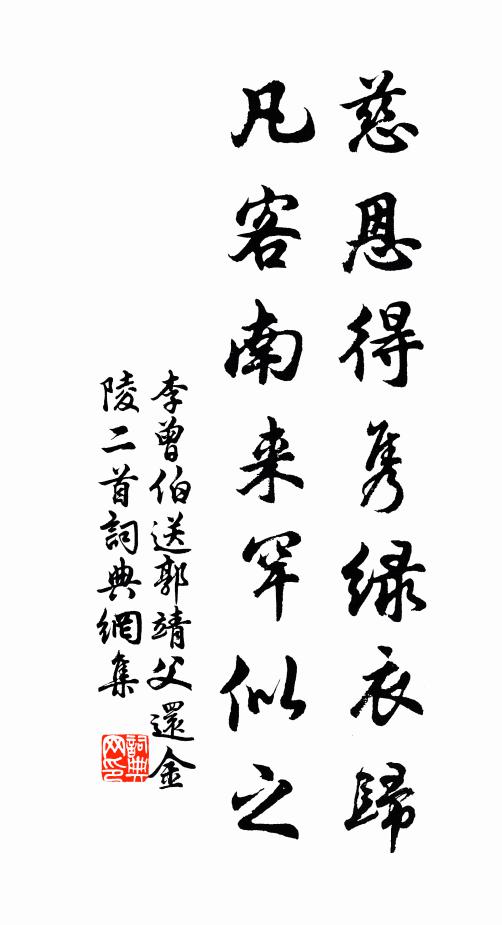 慈恩得隽绿衣歸
凡客南来罕似之
李曾伯送郭靖父還金
陵二首詞典網集
詞典
网印